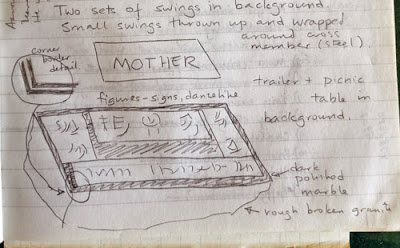 Two sets of swings in background.
Small swings thrown up and wrapped
around cross
member (steel)
corner
border
detail.
MOTHER
trailer + picnic
table in
background.
figures-signs, dancelike
dark
polished
marble
rough broken granite